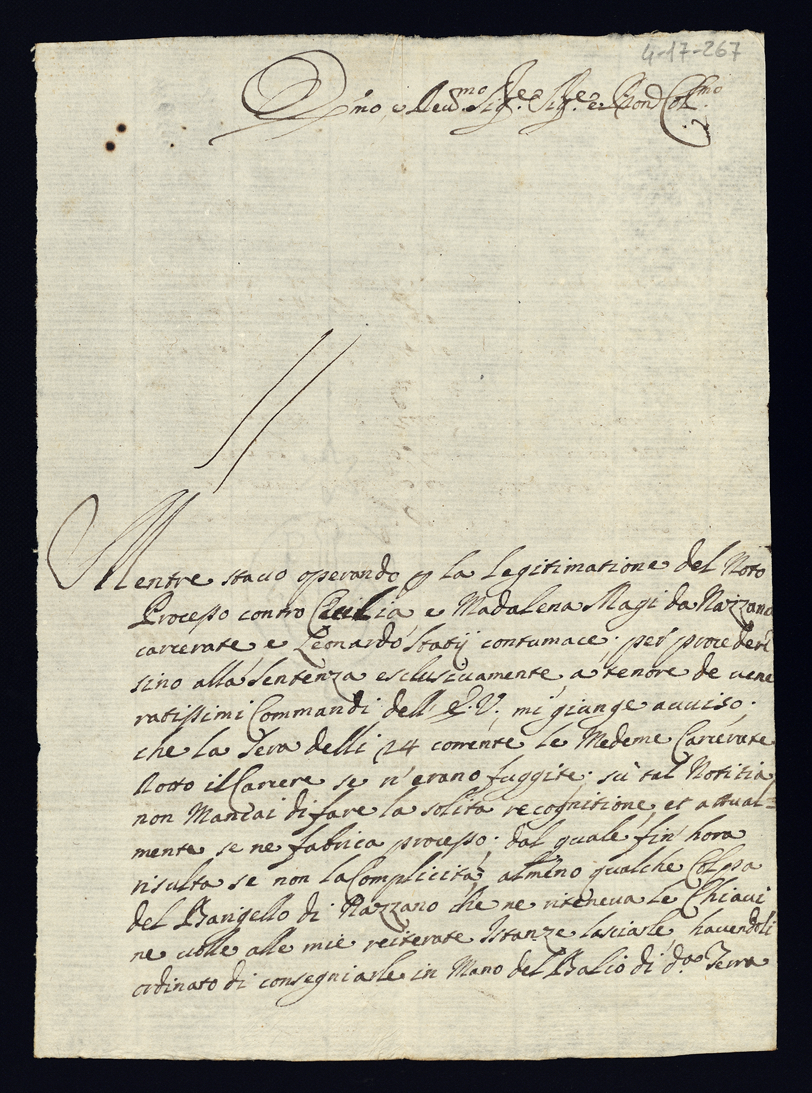 4-17-267
Ill.mo, e Reu.mo Sig.re Sig.re e Pron Col.mo
Mentre stauo operando p la legitimatione del Noto
Processo contro Cecilia e Madalena Magi da Nazzano
carcerate e Leonardo Statij contumace. per procedere
sino alla Sentenza esclusiuamente, a tenore de uene
ratissimi Commandi dell' E.V., mi giunge auuiso.
che la Sera delli 24 corrente le Medeme Carcerate
Rotto il Carcere se n'erano fuggite. sù tal Notitia
non Mancai di fare la solita recognitione, et attual=
mente se ne fabrica processo. dal quale fin' hora
risulta se non la Complicità, almeno qualche Colpa
del Barigello di Nazzano che ne riteneua le Chiaui
ne uolle alle mie reiterate Istanze lasciarle hauendoli
ordinato di consegniarle in Mano del Balio di d.a Terra